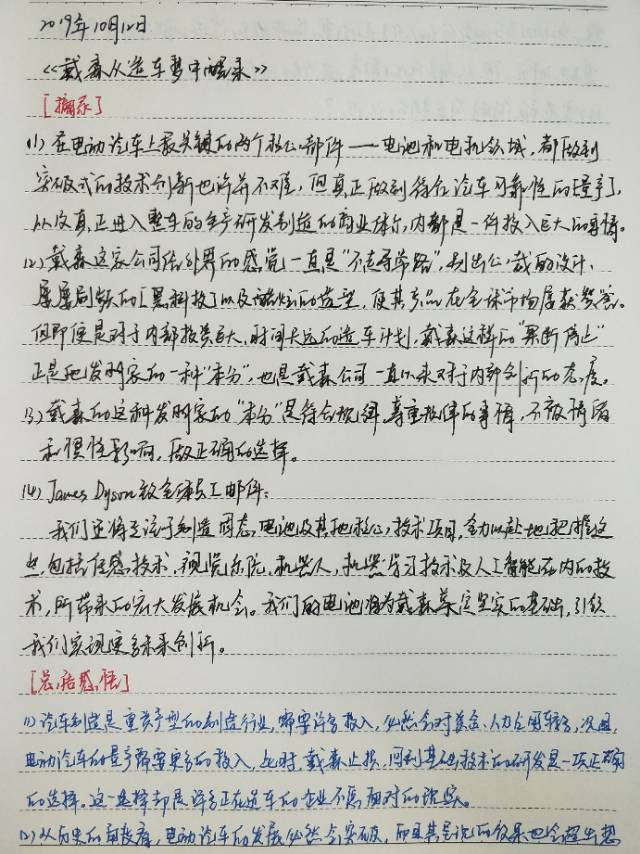 2019年10月12日
《戴森从造车梦中醒来》
[摘录]
(1) 在电动汽车上最关键的两个核心部件——电池和电机领域,都做到
突破式的技术创新也许并不难,但真正做到符合汽车可靠性的量产,
以及真正进入整车的生产研发制造的商业体系,内都是一件投入巨大的事情。
(2) 戴森这家公司给外界的感觉一直是"不走寻常路",别出心裁的设计、
屡屡刷新的[黑科技]以及酷炫的造型,使其产品在全球市场屡获赞誉。
但即便是对于内部投资巨大、时间久远的造车计划,戴森这样的"果断停止"
正是把发明家的一种"本分",也是戴森公司一直以来对于内部创新的态度。
(3) 戴森的这种发明家的"本分"是符合规律、尊重规律的事情,不被情绪
和惯性影响,做正确的选择。
(4) James Dyson致全体员工邮件:
我们还将专注于制造固态电池及其他核心技术项目,全力以赴地把握这
些包括传感技术、视觉系统、机器人、机器学习技术及人工智能在内的技
术,所带来的宏大发展机会。我们的电池将为戴森奠定坚实的基础,引领
我们实现更多未来创新。
[总结感悟]
(1) 汽车制造是重资产型的制造行业,需要许多投入,必然会对资金、人力全面转移,况且
电动汽车的量产需要更多的投入,此时,戴森止损,回到基础技术的研发是一项正确
的选择。这一选择却是许多正在造车的企业不愿面对的现实。
(2) 从历史的角度看,电动汽车的发展必然会突破,而且其呈现的效果也会超出想